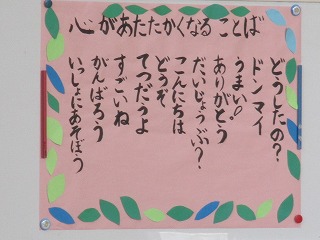 心があたたかくなることば
どうしたの?
ドンマイ
うまい!
ありがとう
だいじょうぶ?
こんにちは
どうぞ
てつだうよ
すごいね
がんばろう
いっしょにあそぼう